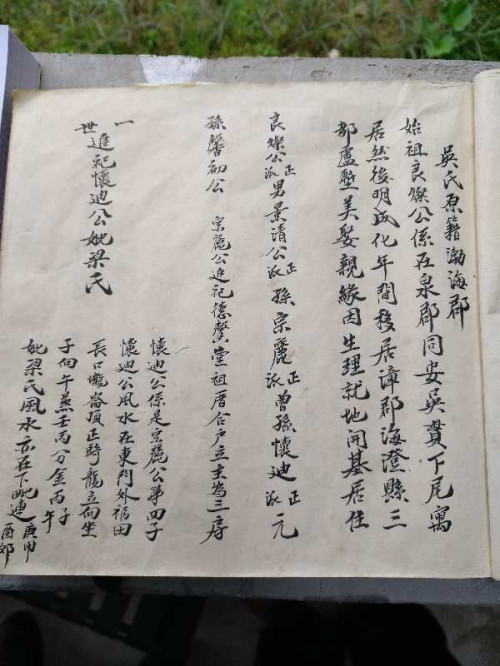 吳氏原籍渤海郡
始祖良燦公係在泉郡同安吳貫下尾寓
居然後明成化年間移居漳郡海澄縣三
都盧塹美娶親緣因生理就地開基居住
良燦公正派男景清公正派孫宗麗正派曾孫懷迪正派元
孫馨初公 宗麗公追祀德馨堂祖厝合户立主為三房
一世追祀懷迪公妣梁氏
懷迪公係是宗麗公第四子
懷迪公風水在東門外福田
長口壠崙頂正時龍立向坐
子向午兼壬丙分金丙子午
妣梁氏風水亦在下毗連庚申酉郊